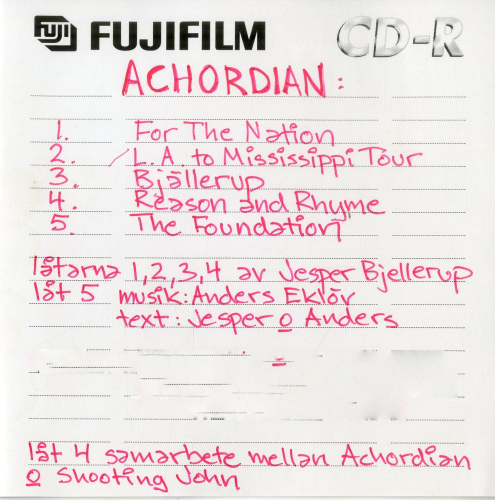 FUJI FUJIFILM CD-R
ACHORDIAN:
1. For The Nation
2. L.A. to Mississippi Tour
3. Bjällerup
4. Reason and Rhyme
5. The Foundation
låtarna 1,2,3,4 av Jesper Bjellerup
låt 5 musik: Anders Eklöv
text: Jesper o Anders
låt 4 samarbete mellan Achordian
o Shooting John